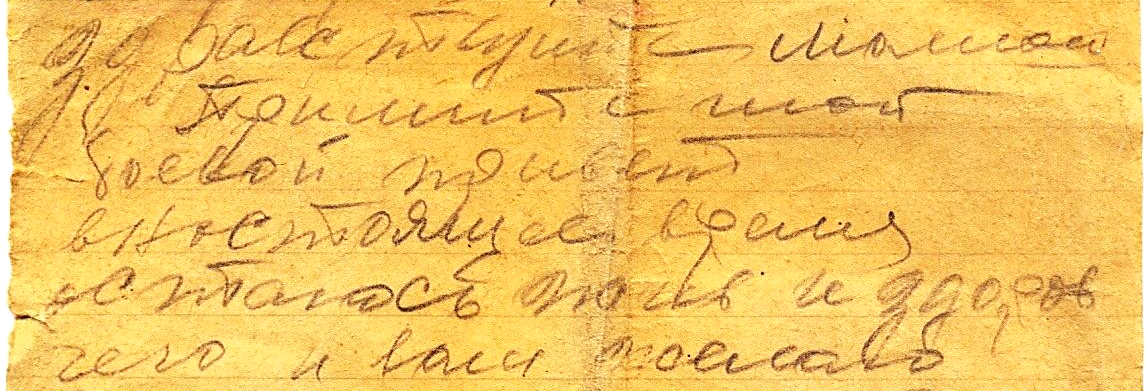 здравствуйте мамаш
Примите мой
боевой привет
внастоящее время
остаюсь жив и здоров
чего и вам желаю